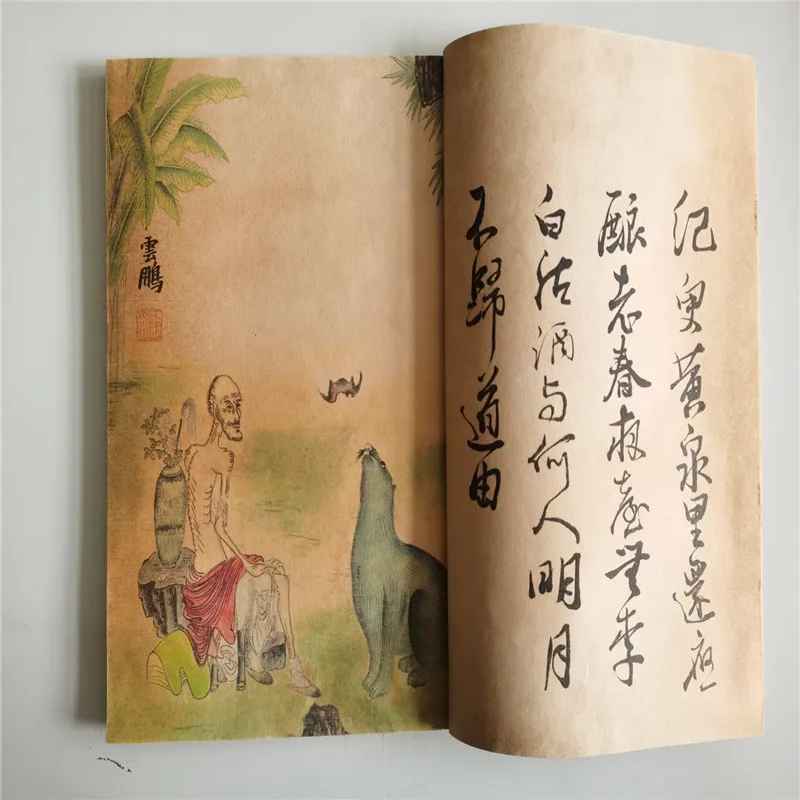 紀叟黃泉里還應
酿老春夜臺無李
白沽酒与何人明月
不歸道由
雲鵬